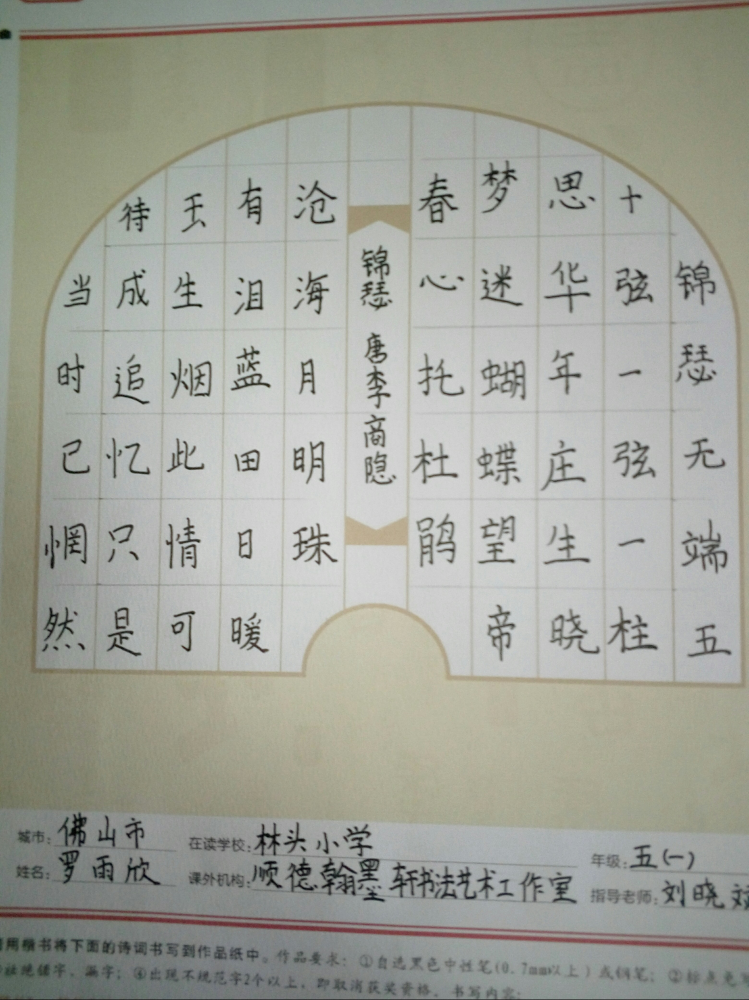 锦瑟无端五
十弦一弦一柱
思华年庄生晓
梦迷蝴蝶望帝
春心托杜鹃
锦瑟 唐李商隐
沧海月明珠
有泪蓝田日暖
玉生烟此情可
待成追忆只是
当时已惘然
城市:佛山市 在读学校:林头小学 年级:五(一)
姓名:罗雨欣 课外机构:顺德翰墨轩书法艺术工作室 指导老师:刘晓
用楷书将下面的诗词书写到作品纸中。作品要求:①自选黑色中性笔(0.7mm以上)或钢笔;②标点免
杜绝错字、漏字;④出现不规范字2个以上,即取消获奖资格。书写内容: